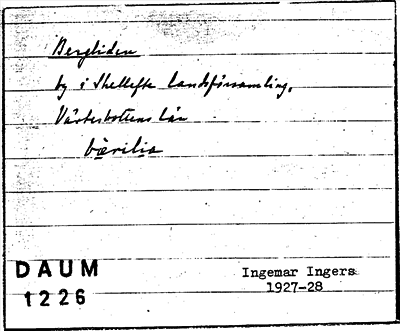 Bergliden
by i Skellefte landsförsamling,
Västerbottens län
bærilia
DAUM
1226
Ingemar Ingers
1927-28